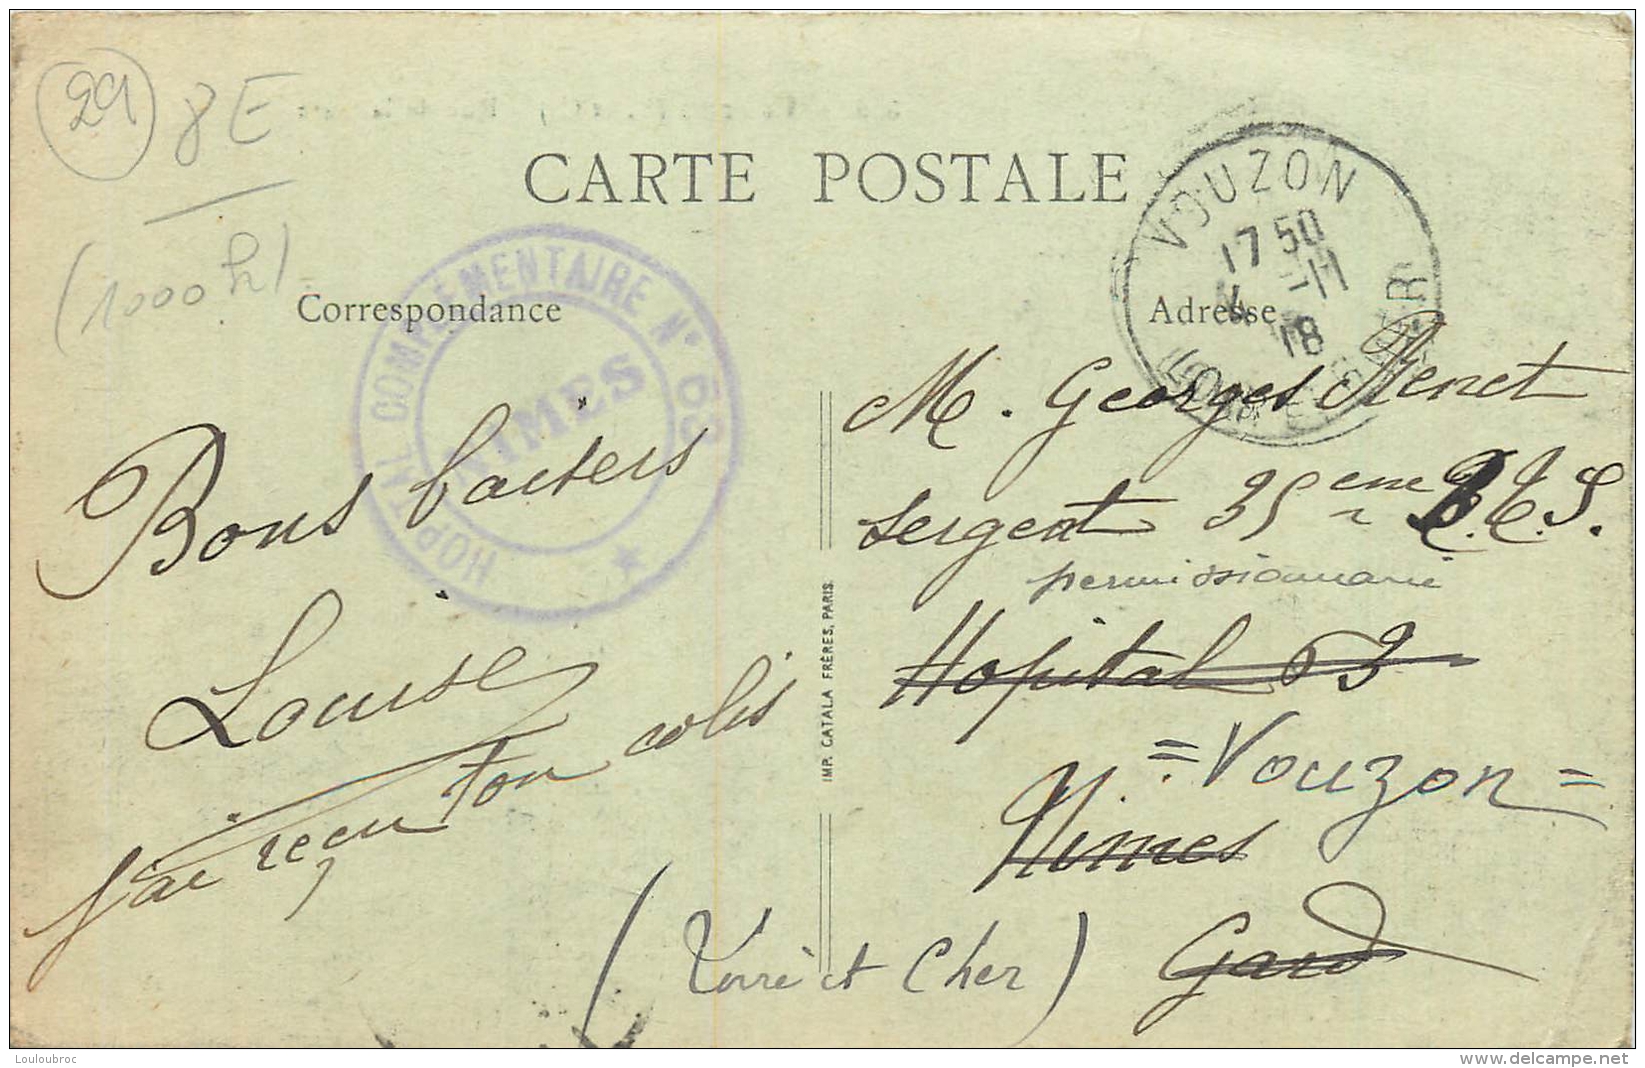 29
8E
(1000 h)
CARTE POSTALE
VOUZON
17 50
4 -11
18
LOIR-ET-CHER
HOPITAL COMPLEMENTAIRE N° 63
NIMES
Correspondance
Adresse
Bons baisers
Louise
J'ai reçu ton colis
IMP. CATALA FRÈRES, PARIS
M. Georges
sergent 35 eme
permissionnaire
Hopital 63
= Vouzon =
Nimes
(Loir et Cher)
Gard
Louloubroc
www.delcampe.net